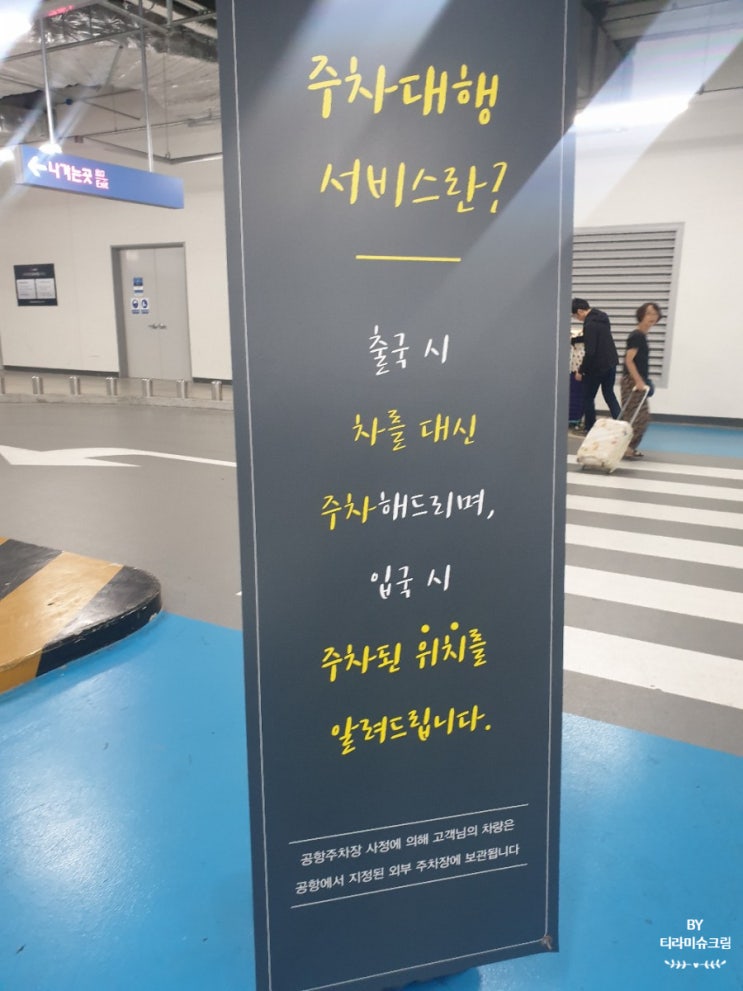 나가는곳
주차대행
서비스란?
출국 시
차를 대신
주차해드리며,
입국 시
주차된 위치를
알려드립니다.
공항주차장 사정에 의해 고객님의 차량은
공항에서 지정된 외부 주차장에 보관됩니다
BY
티라미슈크림